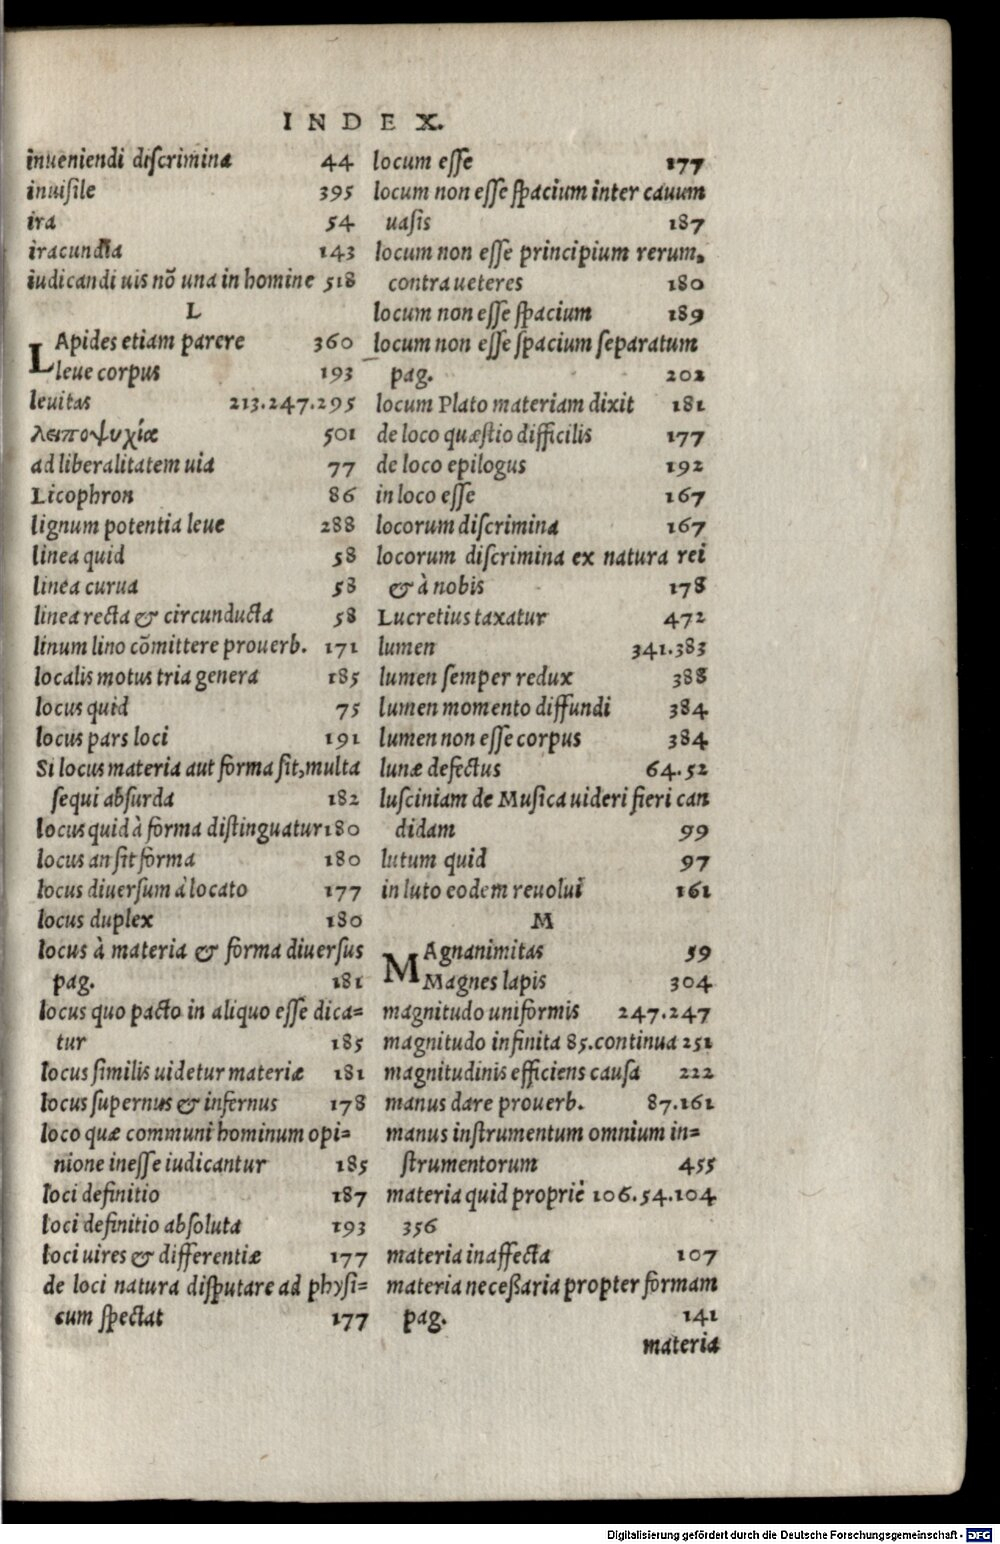 INDEX.
inueniendi discrimina 44
inuisile 395
ira 54
iracundia 143
iudicandi uis nõ una in homine 518
L
LApides etiam parere 360
leue corpus 193
leuitas 213.247.295
λειποψυχία 501
ad liberalitatem uia 77
Licophron 86
lignum potentia leue 288
linea quid 58
linea curua 58
linea recta & circunducta 58
linum lino cõmittere prouerb. 171
localis motus tria genera 185
locus quid 75
locus pars loci 191
Si locus materia aut forma sit, multa
sequi absurda 182
locus quid à forma distinguatur 180
locus an sit forma 180
locus diuersum à locato 177
locus duplex 180
locus à materia & forma diuersus
pag. 181
locus quo pacto in aliquo esse dica=
tur 185
locus similis uidetur materiæ 181
locus supernus & infernus 178
loco quæ communi hominum opi=
nione inesse iudicantur 185
loci definitio 187
loci definitio absoluta 193
loci uires & differentiæ 177
de loci natura disputare ad physi=
cum spectat 177
locum esse 177
locum non esse spacium inter cauum
uasis 187
locum non esse principium rerum,
contra ueteres 180
locum non esse spacium 189
locum non esse spacium separatum
pag. 202
locum Plato materiam dixit 181
de loco quæstio difficilis 177
de loco epilogus 192
in loco esse 167
locorum discrimina 167
locorum discrimina ex natura rei
& à nobis 178
Lucretius taxatur 472
lumen 341.383
lumen semper redux 388
lumen momento diffundi 384
lumen non esse corpus 384
lunæ defectus 64.52
lusciniam de Musica uideri fieri can
didam 99
lutum quid 97
in luto eodem reuolui 161
M
MAgnanimitas 59
Magnes lapis 304
magnitudo uniformis 247.247
magnitudo infinita 85. continua 251
magnitudinis efficiens causa 222
manus dare prouerb. 87.161
manus instrumentum omnium in=
strumentorum 455
materia quid propriè 106.54.104
356
materia inaffecta 107
materia necessaria propter formam
pag. 141
materia
Digitalisierung gefördert durch die Deutsche Forschungsgemeinschaft - DFG